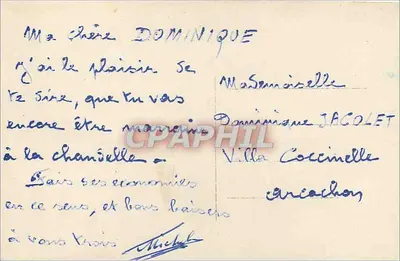 Ma chère DOMINIQUE
j'ai le plaisir de
te dire, que tu vas
encore être marraine
à la chandelle.
Fais des économies
en ce sens, et bons baisers
à vous trois Michel
Mademoiselle
Dominique JACOLET
Villa Coccinelle
Arcachon
CPAPHIL